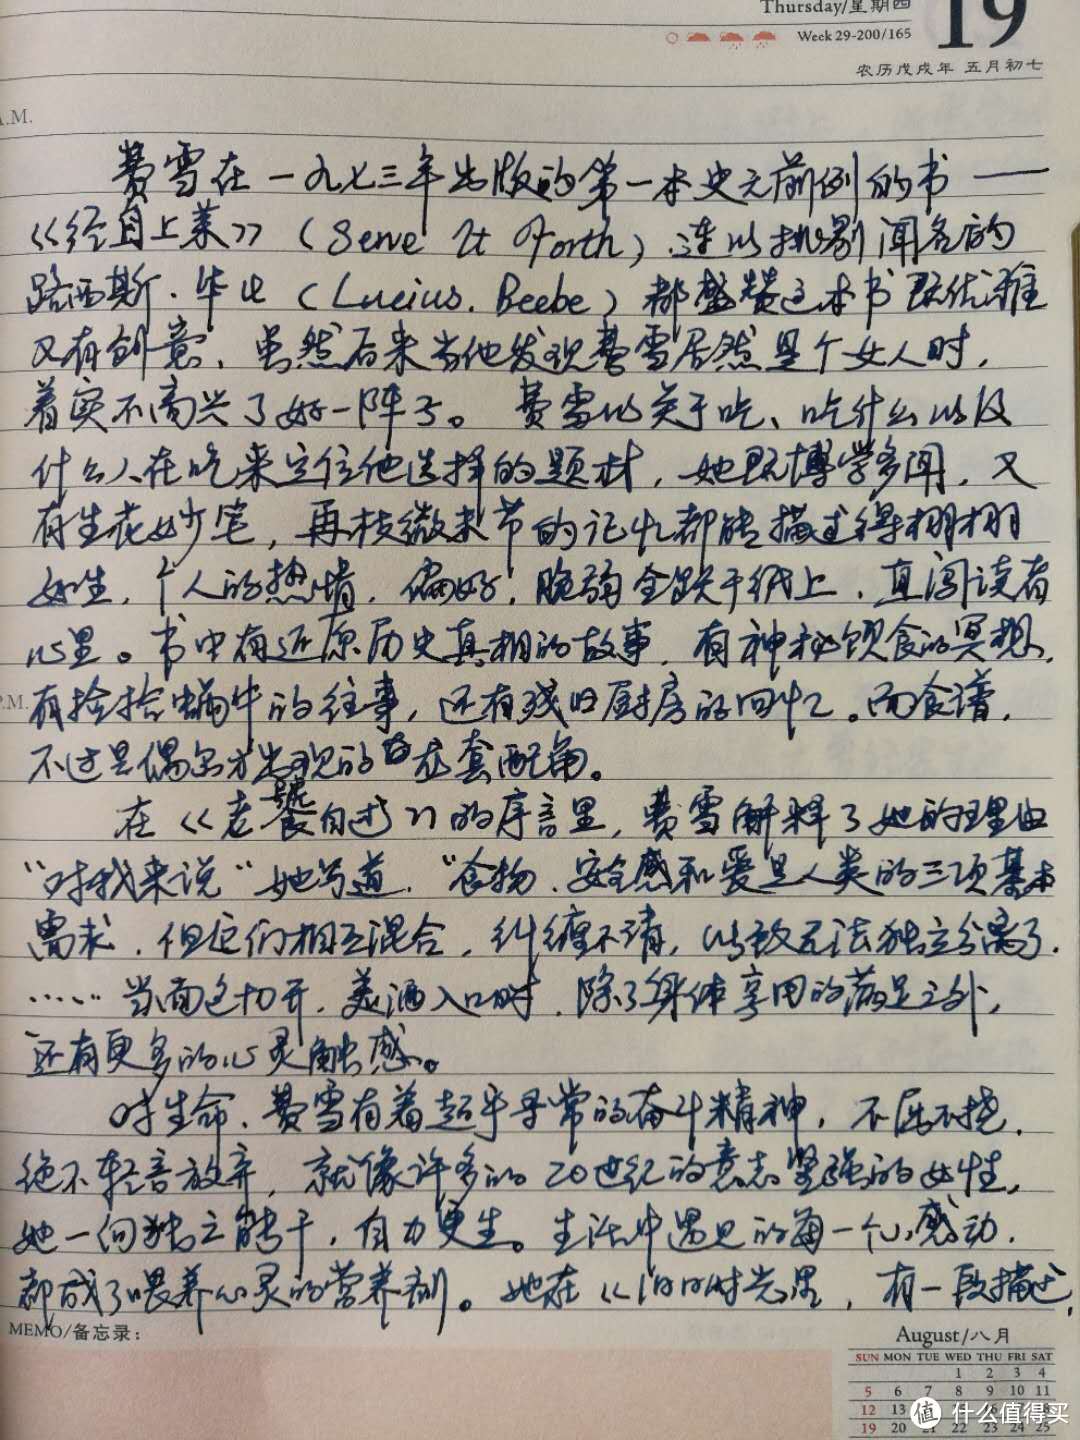 Thursday/星期四
19
Week 29-200/165
农历戊戌年 五月初七
A.M.
费雪在一九七三年出版的第一本史无前例的书——
《经自上菜》(Serve It Forth),连以挑剔闻名的
路西斯.毕比(Lucius.Beebe)都盛赞这本书既优雅
又有创意,虽然后来当他发现费雪居然是个女人时,
着实不高兴了好一阵子。费雪以关于吃、吃什么以及
什么人在吃来定位他选择的题材,她既博学多闻,又
有生花妙笔,再枝微末节的记忆都能描述得栩栩
如生,个人的热情,偏好,脆弱全跃于纸上,直闯读者
心里。书中有还原历史真相的故事,有神秘饮食的冥想,
P.M.
有捡拾蜗牛的往事,还有残旧厨房的回忆。而食谱,
不过是偶尔才出现的花套配角。
在《老饕自述》的序言里,费雪解释了她的理由
“对我来说”她写道,“食物、安全感和爱是人类的三项基本
需求,但它们相互混合,纠缠不清,以致无法独立分离了.
……当面包切开,美酒入口时,除了身体享用的满足之外,
还有更多的心灵触感。
对生命,费雪有着超乎寻常的奋斗精神,不屈不挠,
绝不轻言放弃,就像许多的20世纪的意志坚强的女性,
她一向独立能干,自力更生。生活中遇见的每一个小感动,
都成了喂养心灵的营养剂。她在《旧日时光里,有一段描述,
MEMO/备忘录:
August/八月
SUN MON TUE WED THU FRI SAT
1 2 3 4
5 6 7 8 9 10 11
12 13
19 20 21 22 23 24 25
值 什么值得买